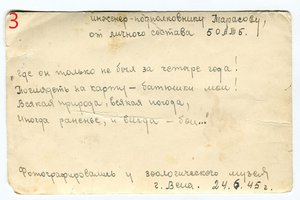 3
инженер-подполковнику Тарасову,
от личного состава 50 АТБ.
"Где он только не был за четыре года!
Поглядеть на карту – батюшки мои!
Всякая природа, всякая погода,
Иногда раненье, и всегда – бои..."
Фотографировались у зоологического музея
г. Вена. 24.6.45 г.